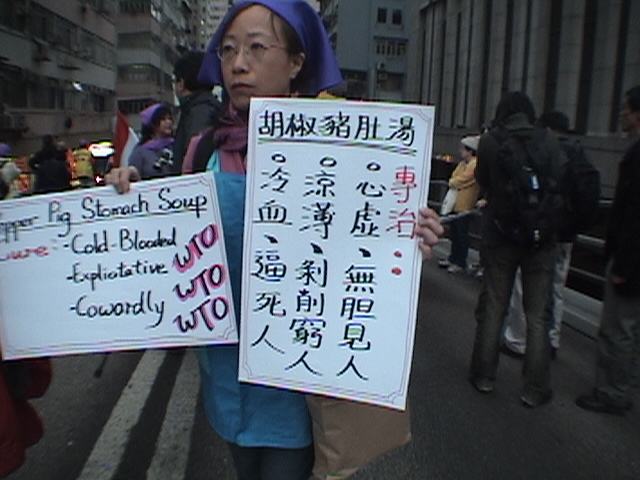 pper Pig Stomach Soup
Cure: -Cold-Blooded WTO
-Expliotative WTO
-Cowordly WTO
胡椒豬肚湯
專治：
。心虛、無胆見人
。涼薄、剝削窮人
。冷血、逼死人